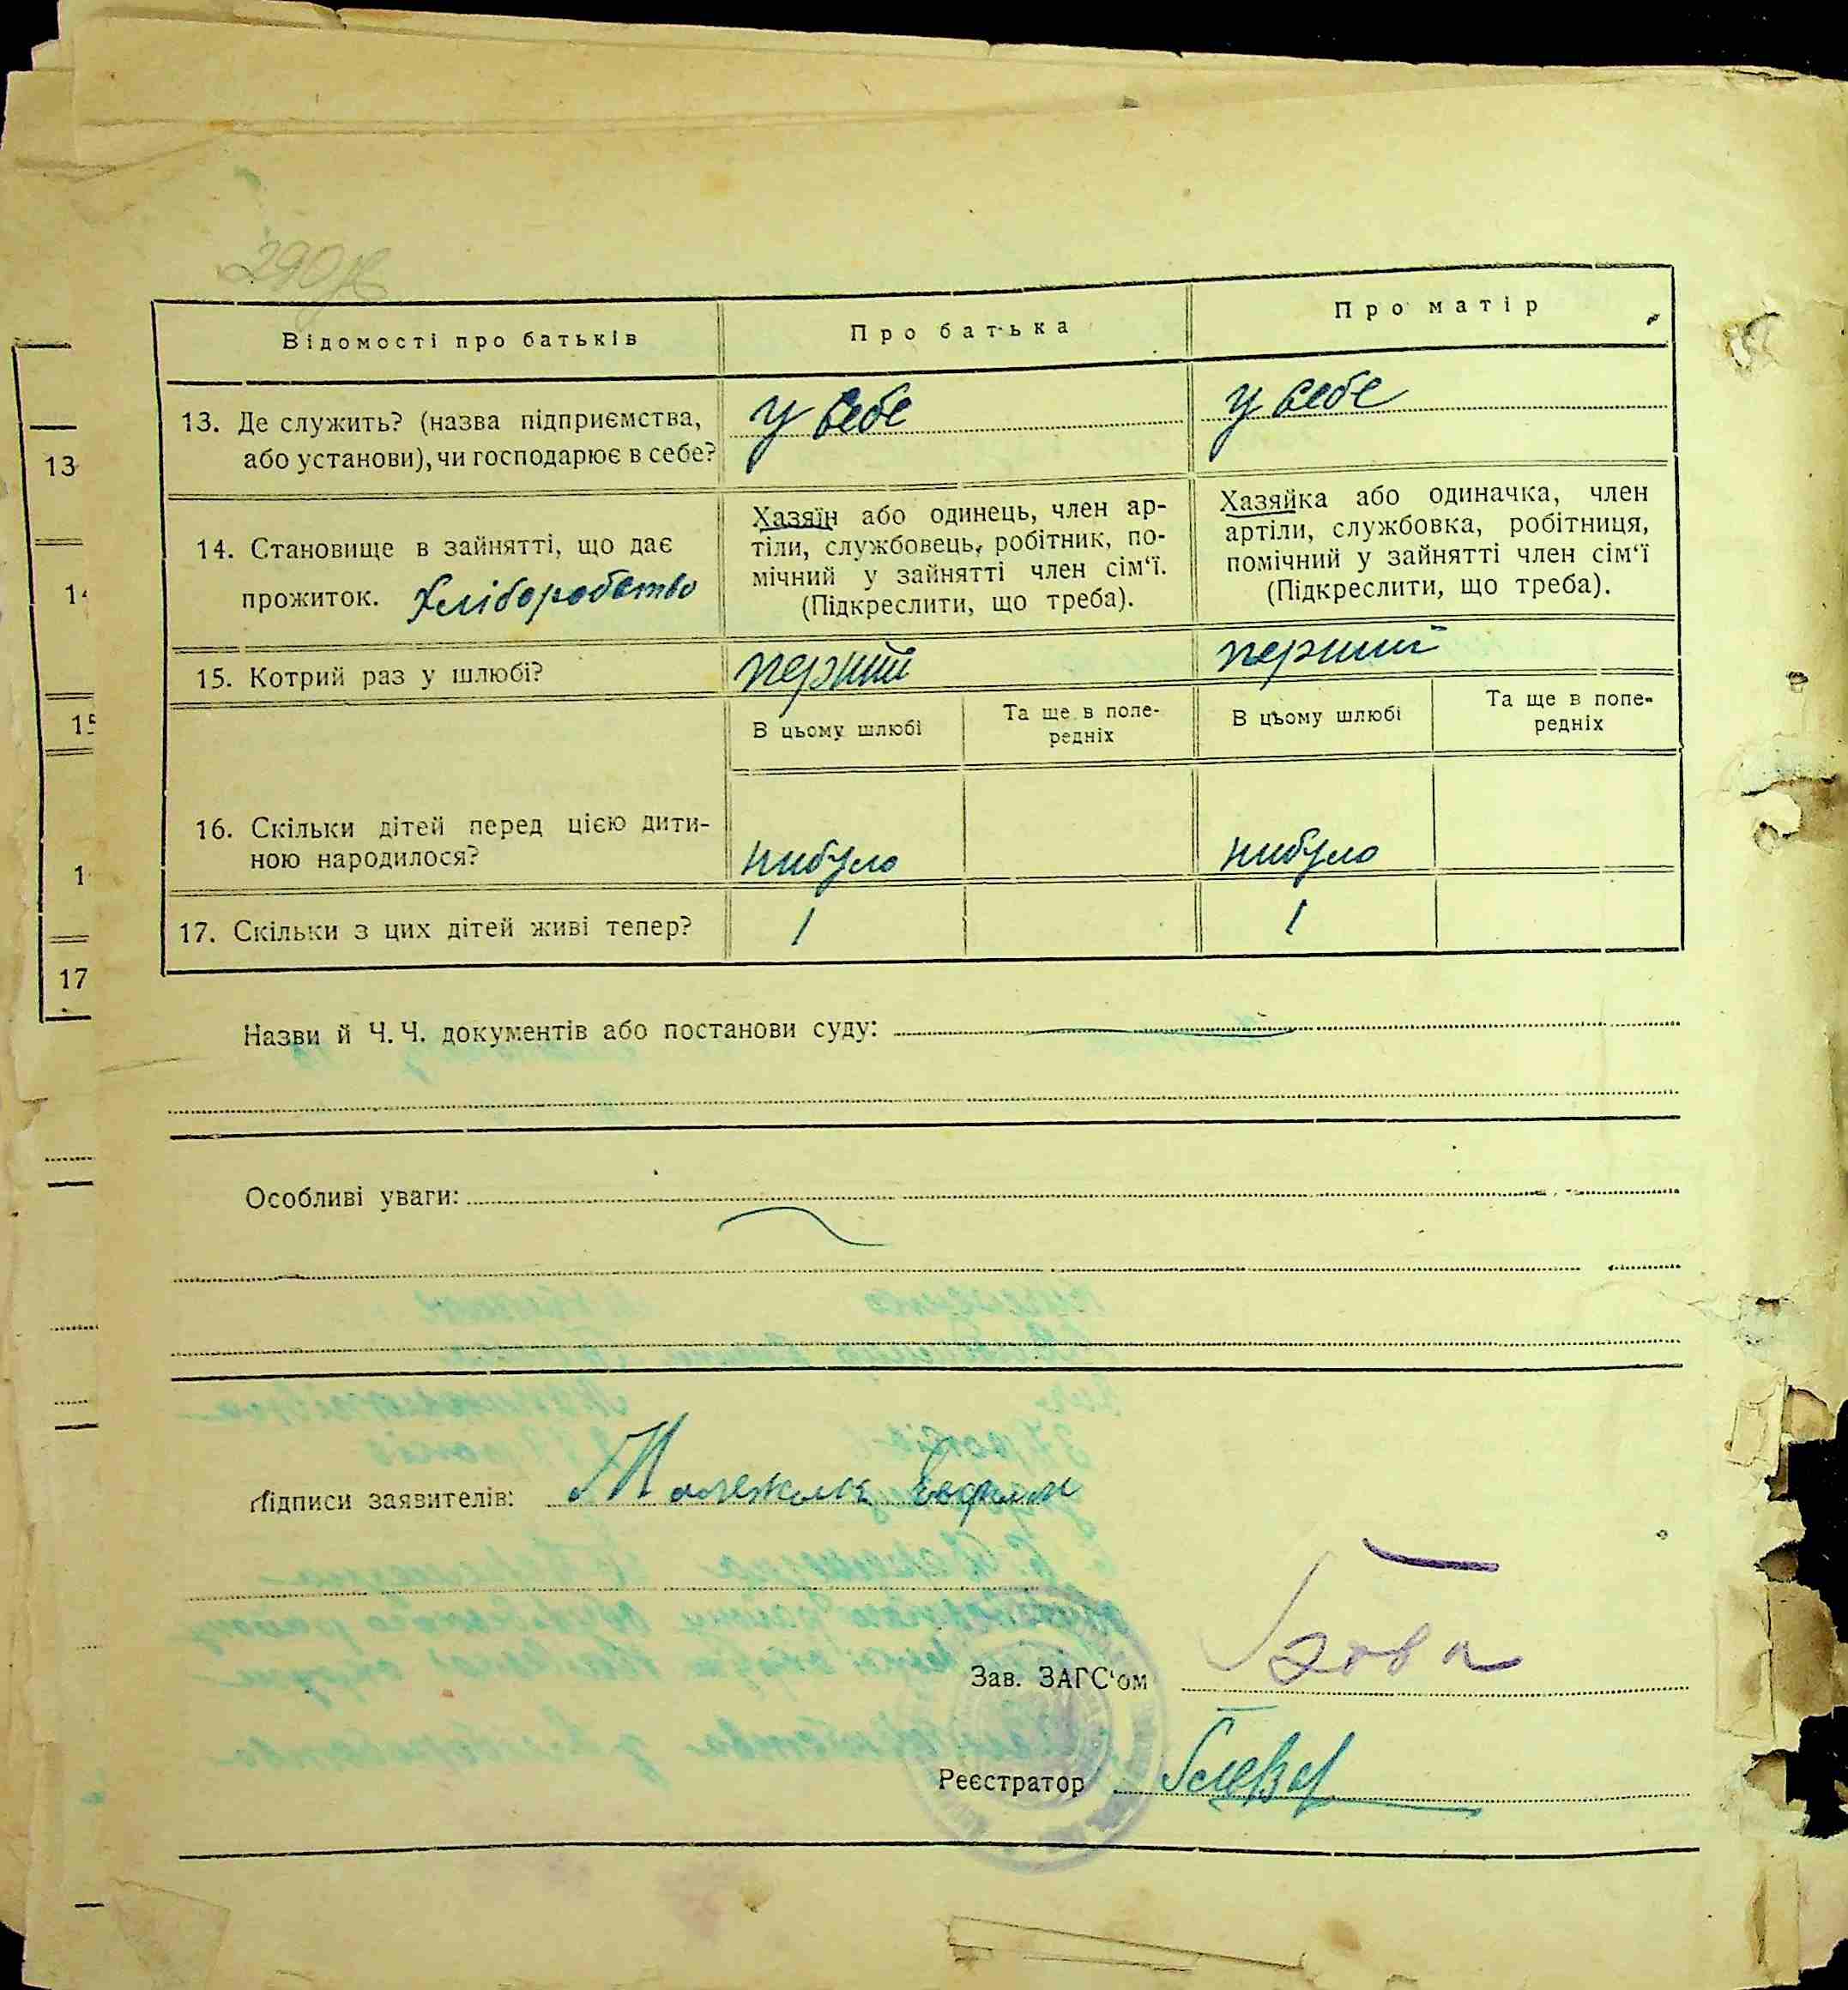 290зв
Відомості про батьків
Про батька
Про матір
13. Де служить? (назва підприємства, або установи), чи господарює в себе?
у себе
у себе
14. Становище в зайнятті, що дає прожиток. Хліборобство
Хазяїн або одинець, член ар-
тіли, службовець, робітник, по-
мічний у зайнятті член сім‘ї.
(Підкреслити, що треба).
Хазяйка або одиначка, член
артіли, службовка, робітниця,
помічний у зайнятті член сім‘ї
(Підкреслити, що треба).
15. Котрий раз у шлюбі?
перший
перший
В цьому шлюбі
Та ще в попе-
редніх
В цьому шлюбі
Та ще в попе-
редніх
16. Скільки дітей перед цією дити-
ною народилося?
нибуло
нибуло
17. Скільки з цих дітей живі тепер?
1
1
Назви й Ч. Ч. документів або постанови суду:
Особливі уваги:
Підписи заявителів:
Зав. ЗАГС‘ом
Реєстратор
13
14
15
1
17